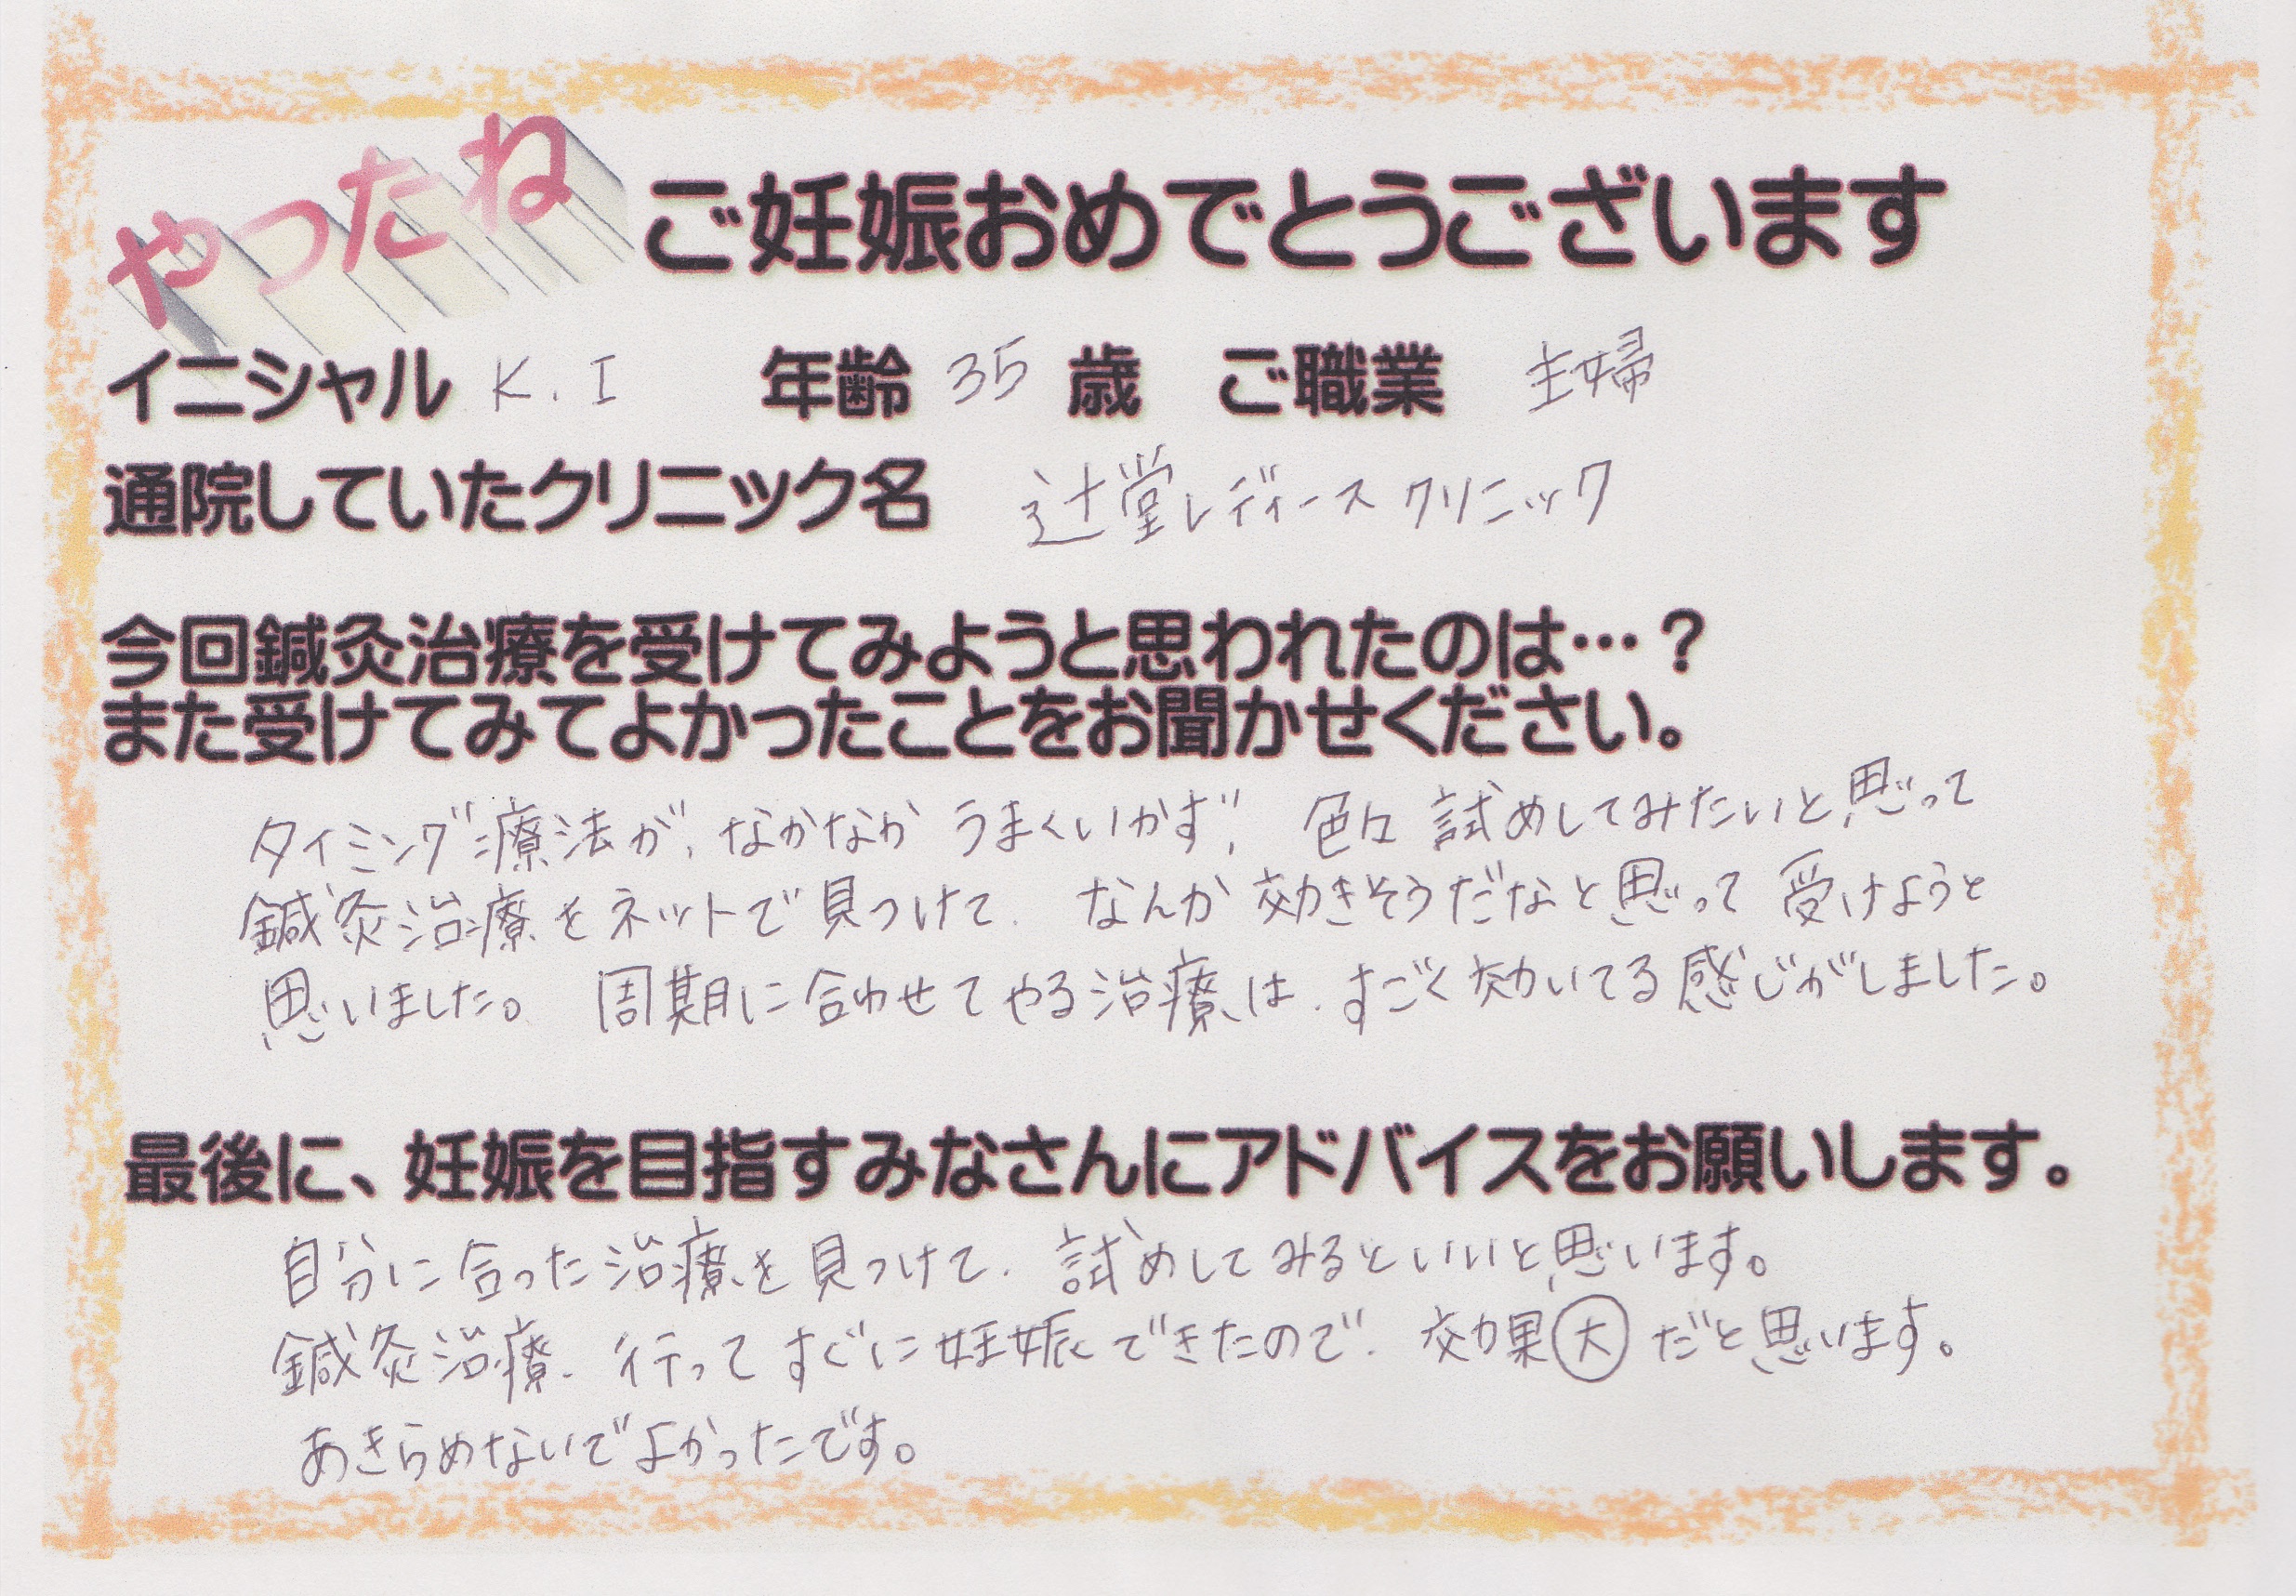 やったね ご妊娠おめでとうございます
イニシャル K.I 年齢 35 歳 ご職業 主婦
通院していたクリニック名 辻堂レディースクリニック
今回鍼灸治療を受けてみようと思われたのは…？
また受けてみてよかったことをお聞かせください。
タイミング療法が、なかなかうまくいかず、色々試めしてみたいと思って
鍼灸治療をネットで見つけて、なんか効きそうだなと思って受けようと
思いました。周期に合わせてやる治療は、すごく効いてる感じがしました。
最後に、妊娠を目指すみなさんにアドバイスをお願いします。
自分に合った治療を見つけて、試めしてみるといいと思います。
鍼灸治療、行ってすぐに妊娠できたので、効果大だと思います。
あきらめないでよかったです。